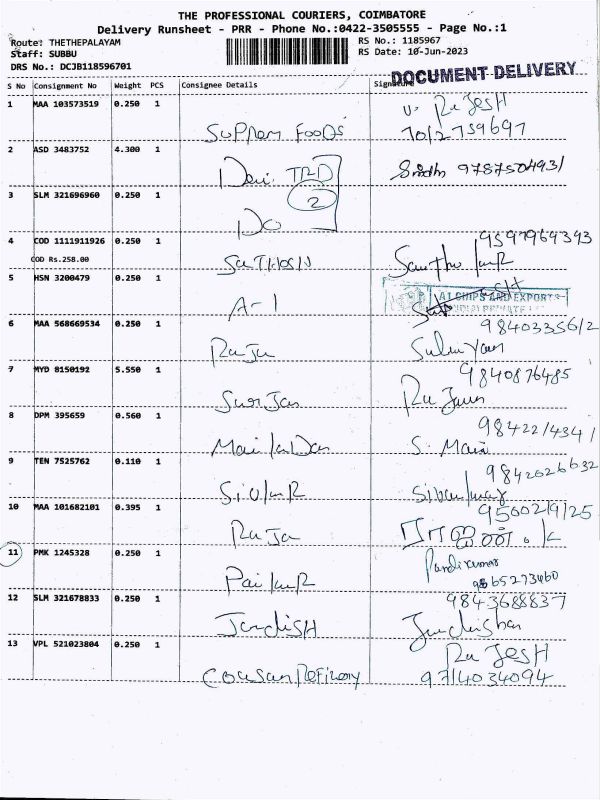 THE PROFESSIONAL COURIERS, COIMBATORE
Delivery Runsheet - PRR - Phone No.:0422-3505555 - Page No.:1
Route: THETHEPALAYAM
Staff: SUBBU
DRS No.: DCJB118596701
RS No.: 1185967
RS Date: 10-Jun-2023
DOCUMENT DELIVERY
S No Consignment No Weight PCS Consignee Details Signature
1 MAA 103573519 0.250 1 V. RaJesH
Supprem FooDs
2 ASD 3483752 4.300 1 Devi TRD 9787504931
2
3 SLM 321696960 0.250 1 Do
4 COD 1111911926 0.250 1 9597969393
COD Rs.258.00 SaTHosH
5 HSN 3200479 0.250 1 A-1
A1 CHIPS AND EXPORTS
6 MAA 568669534 0.250 1 RaJa 9840335612
7 MYD 8150192 5.550 1 9840876485
8 DPM 395659 0.560 1 9842214341
S. Mani
9 TEN 7525762 0.110 1 SivakaR 9842026632
10 MAA 101682101 0.395 1 RaJa 9500219125
ராஜன். K
11 PMK 1245328 0.250 1 Pandikumar
9865273460
12 SLM 321678833 0.250 1 JandisH 9843688837
13 VPL 521023804 0.250 1 RaJesH
Refinery 9714034094